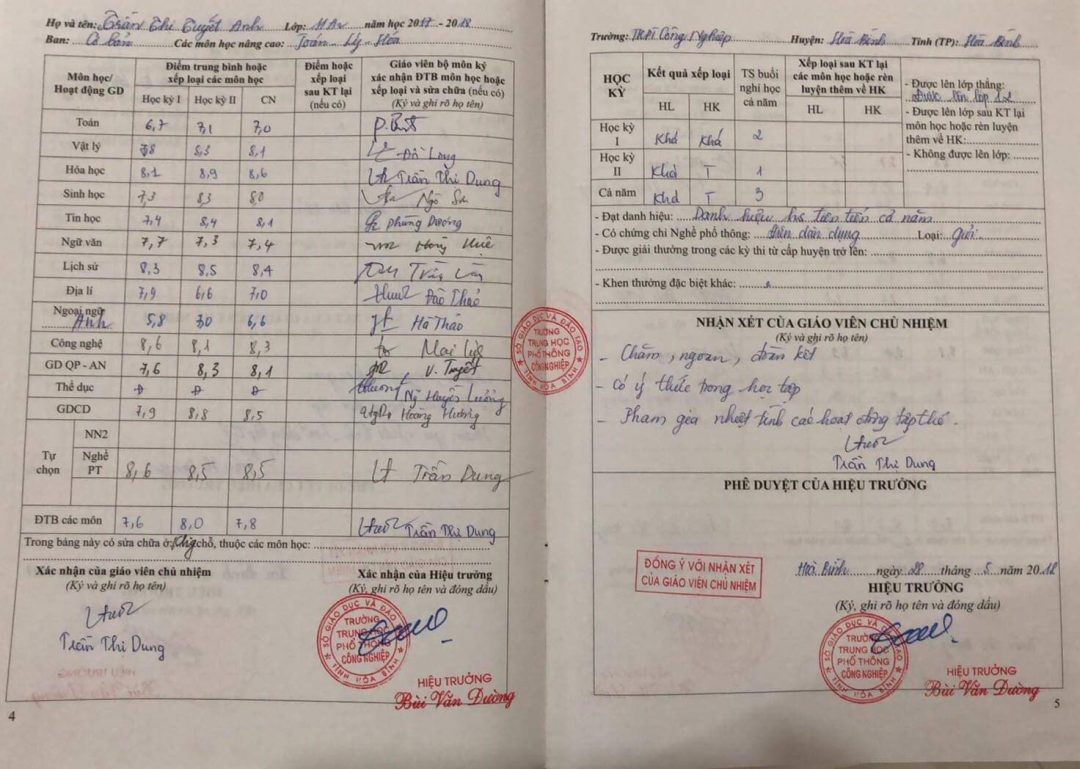 Họ và tên: Trần Thị Tuyết Anh Lớp: 11A năm học 2017 - 2018
Ban: Cơ bản Các môn học nâng cao: Toán - Lý - Hóa
Môn học/ Hoạt động GD
Điểm trung bình hoặc xếp loại các môn học
Học kỳ I Học kỳ II CN
Điểm hoặc xếp loại sau KT lại (nếu có)
Giáo viên bộ môn ký xác nhận ĐTB môn học hoặc xếp loại và sửa chữa (nếu có)
(Ký và ghi rõ họ tên)
Toán 6,7 7,1 7,0
Vật lý 7,8 8,3 8,1 Đỗ Long
Hóa học 8,1 8,9 8,6 Trần Thị Dung
Sinh học 7,3 8,3 8,0 Ngô
Tin học 7,4 8,4 8,1 Phùng Dương
Ngữ văn 7,7 7,3 7,4 Hồng Huệ
Lịch sử 8,3 8,5 8,4 Trần
Địa lí 7,9 6,6 7,0 Đào Thảo
Ngoại ngữ Anh 5,8 7,0 6,6 Hà Thảo
Công nghệ 8,6 8,1 8,3 Mai
GD QP - AN 7,6 8,3 8,1 V. Tuyết
Thể dục Đ Đ Đ
GDCD 7,9 8,8 8,5 Hoàng Hương
Tự chọn
NN2
Nghề PT 8,6 8,5 8,5 Trần Dung
ĐTB các môn 7,6 8,0 7,8 Trần Thị Dung
Trong bảng này có sửa chữa ở: chỗ, thuộc các môn học:
Xác nhận của giáo viên chủ nhiệm
(Ký và ghi rõ họ tên)
Trần Thị Dung
Xác nhận của Hiệu trưởng
(Ký, ghi rõ họ tên và đóng dấu)
SỞ GIÁO DỤC VÀ ĐÀO TẠO
TRƯỜNG
TRUNG HỌC
PHỔ THÔNG
CÔNG NGHIỆP
TỈNH HÒA BÌNH
HIỆU TRƯỞNG
Bùi Văn Dường
4
Trường: THPT Công Nghiệp Huyện: Hoà Bình Tỉnh (TP): Hoà Bình
HỌC KỲ
Kết quả xếp loại
HL HK
TS buổi nghỉ học cả năm
Xếp loại sau KT lại các môn học hoặc rèn luyện thêm về HK
HL HK
Học kỳ I Khá Khá 2
Học kỳ II Khá T 1
Cả năm Khá T 3
- Được lên lớp thẳng:
Được lên lớp 12
- Được lên lớp sau KT lại môn học hoặc rèn luyện thêm về HK:
- Không được lên lớp:
- Đạt danh hiệu: Danh hiệu hs tiên tiến cả năm
- Có chứng chỉ Nghề phổ thông: Điện dân dụng Loại: giỏi
- Được giải thưởng trong các kỳ thi từ cấp huyện trở lên:
- Khen thưởng đặc biệt khác:
SỞ GIÁO DỤC VÀ ĐÀO TẠO
TRƯỜNG
TRUNG HỌC
PHỔ THÔNG
CÔNG NGHIỆP
TỈNH HÒA BÌNH
NHẬN XÉT CỦA GIÁO VIÊN CHỦ NHIỆM
(Ký và ghi rõ họ tên)
- Chăm, ngoan, đoàn kết
- Có ý thức trong học tập
- Tham gia nhiệt tình các hoạt động tập thể.
Trần Thị Dung
PHÊ DUYỆT CỦA HIỆU TRƯỞNG
ĐỒNG Ý VỚI NHẬN XÉT
CỦA GIÁO VIÊN CHỦ NHIỆM
Hoà Bình ngày 28 tháng 5 năm 2018
HIỆU TRƯỞNG
(Ký, ghi rõ họ tên và đóng dấu)
SỞ GIÁO DỤC VÀ ĐÀO TẠO
TRƯỜNG
TRUNG HỌC
PHỔ THÔNG
CÔNG NGHIỆP
TỈNH HÒA BÌNH
HIỆU TRƯỞNG
Bùi Văn Dường
5